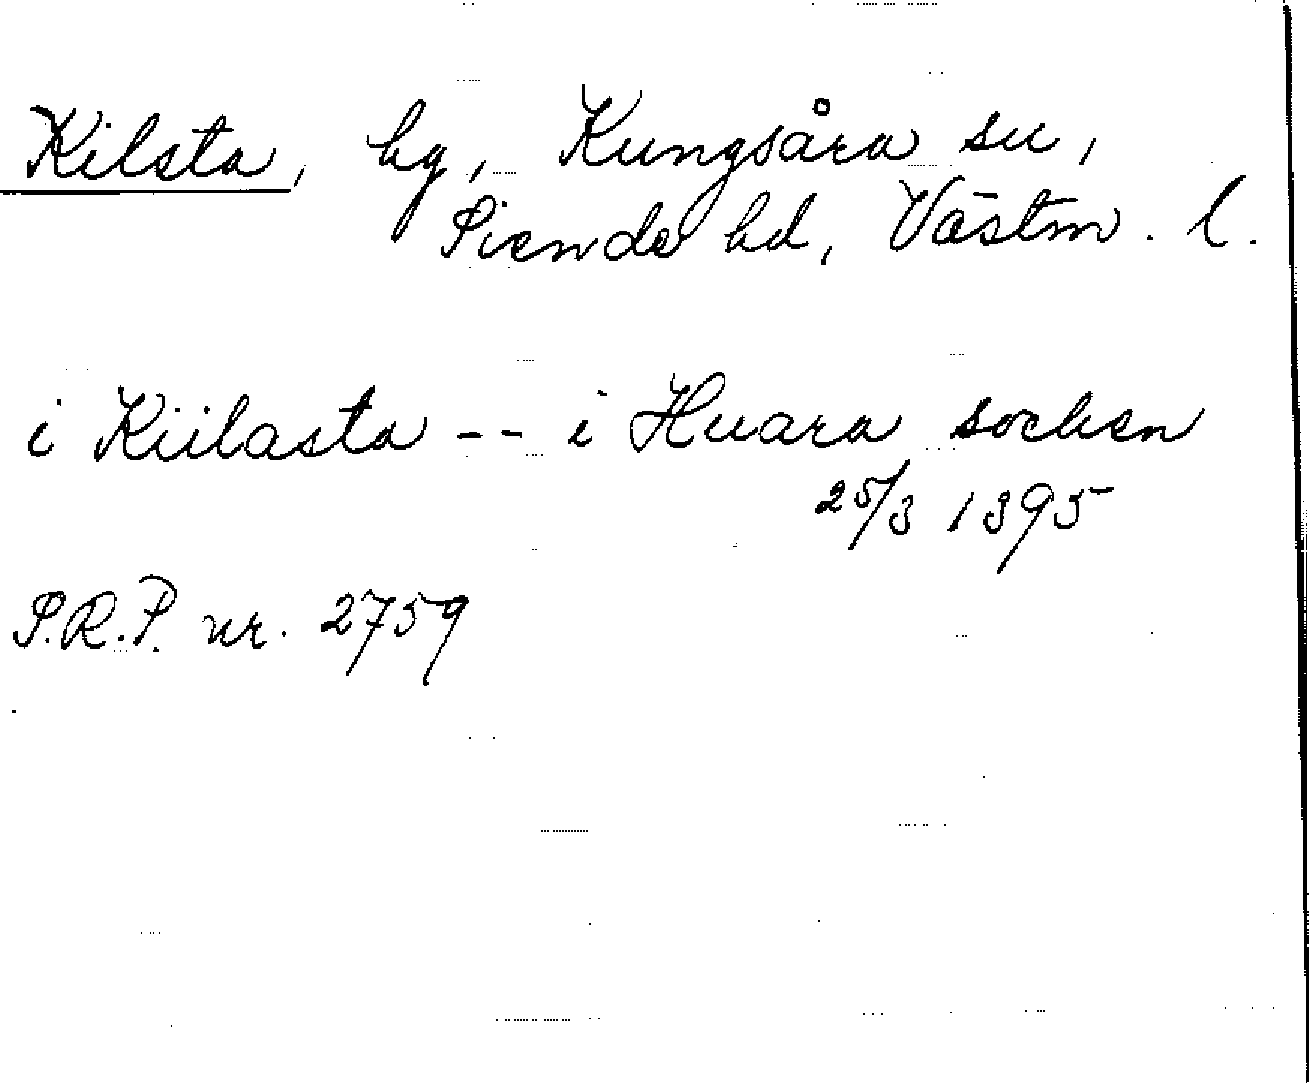 Kilsta, by, Kungsåra sn,
Siende hd, Västm. l.
i Kiilasta -- i Huara socken
25/3 1395
S.R.P. nr. 2759